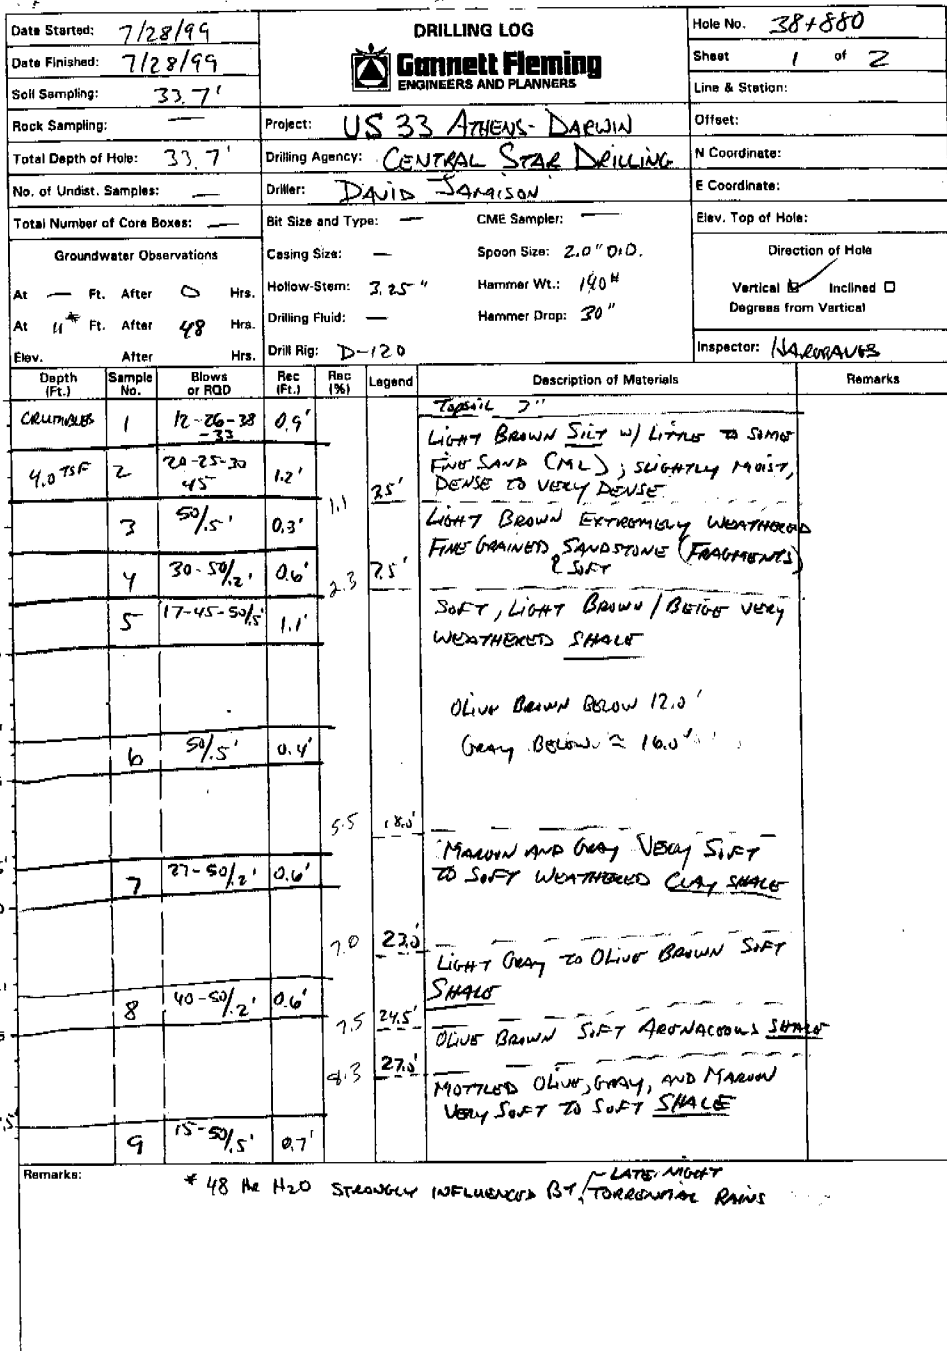 Date Started: 7/28/99
Date Finished: 7/28/99
Soil Sampling: 33.7'
Rock Sampling: —
Total Depth of Hole: 33.7'
No. of Undist. Samples: —
Total Number of Core Boxes: —
Groundwater Observations
At — Ft. After 0 Hrs.
At 11* Ft. After 48 Hrs.
Elev. After Hrs.
DRILLING LOG
Gannett Fleming
ENGINEERS AND PLANNERS
Project: US 33 ATHENS-DARWIN
Drilling Agency: CENTRAL STAR DRILLING
Driller: DAVID JAMISON
Bit Size and Type: — CME Sampler: —
Casing Size: — Spoon Size: 2.0" O.D.
Hollow-Stem: 3.25" Hammer Wt.: 140#
Drilling Fluid: — Hammer Drop: 30"
Drill Rig: D-120
Hole No. 38+880
Sheet 1 of 2
Line & Station:
Offset:
N Coordinate:
E Coordinate:
Elev. Top of Hole:
Direction of Hole
Vertical Inclined
Degrees from Vertical
Inspector: HARGRAVES
Depth (Ft.) Sample No. Blows or RQD Rec (Ft.) Rec (%) Legend Description of Materials Remarks
TOPSOIL 2"
CRUMBLES 1 12-26-38-33 0.9' LIGHT BROWN SILT W/ LITTLE TO SOME
4.0 TSF 2 20-25-30 45 1.2' FINE SAND (ML); SLIGHTLY MOIST,
1.1 3.5' DENSE TO VERY DENSE
3 50/.5' 0.3' LIGHT BROWN EXTREMELY WEATHERED
FINE GRAINED SANDSTONE (FRAGMENTS)
& SOFT
4 30-50/.2' 0.6' 2.3 7.5'
5 17-45-50/.5' 1.1' SOFT, LIGHT BROWN / BEIGE VERY
WEATHERED SHALE
OLIVE BROWN BELOW 12.0'
6 50/.5' 0.4' GRAY BELOW ≈ 16.0'
5.5 18.0'
MAROON AND GRAY VERY SOFT
7 27-50/.2' 0.6' TO SOFT WEATHERED CLAY SHALE
7.0 23.0'
LIGHT GRAY TO OLIVE BROWN SOFT
8 40-50/.2' 0.6' SHALE
7.5 24.5'
OLIVE BROWN SOFT ARENACEOUS SHALE
8.3 27.0'
MOTTLED OLIVE, GRAY, AND MAROON
VERY SOFT TO SOFT SHALE
9 15-50/.5' 0.7'
Remarks: * 48 HR H2O STRONGLY INFLUENCED BY LATE NIGHT TORRENTIAL RAINS